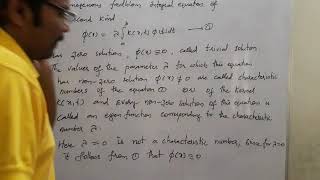 Fredholm integral equation of
second kind
ϕ(x) = λ∫ K(x,t) ϕ(t)dt — ①
has zero solution, ϕ(x)≡0, called trivial solution.
The values of the parameter λ for which this equation
has non-zero solution ϕ(x)≢0 are called characteristic
numbers of the equation ① or of the kernel
K(x,t) and every non-zero solution of this equation is
called an eigen function corresponding to the characteristic
number λ.
Here λ=0 is not a characteristic number, since for λ=0
it follows from ① that ϕ(x)≡0